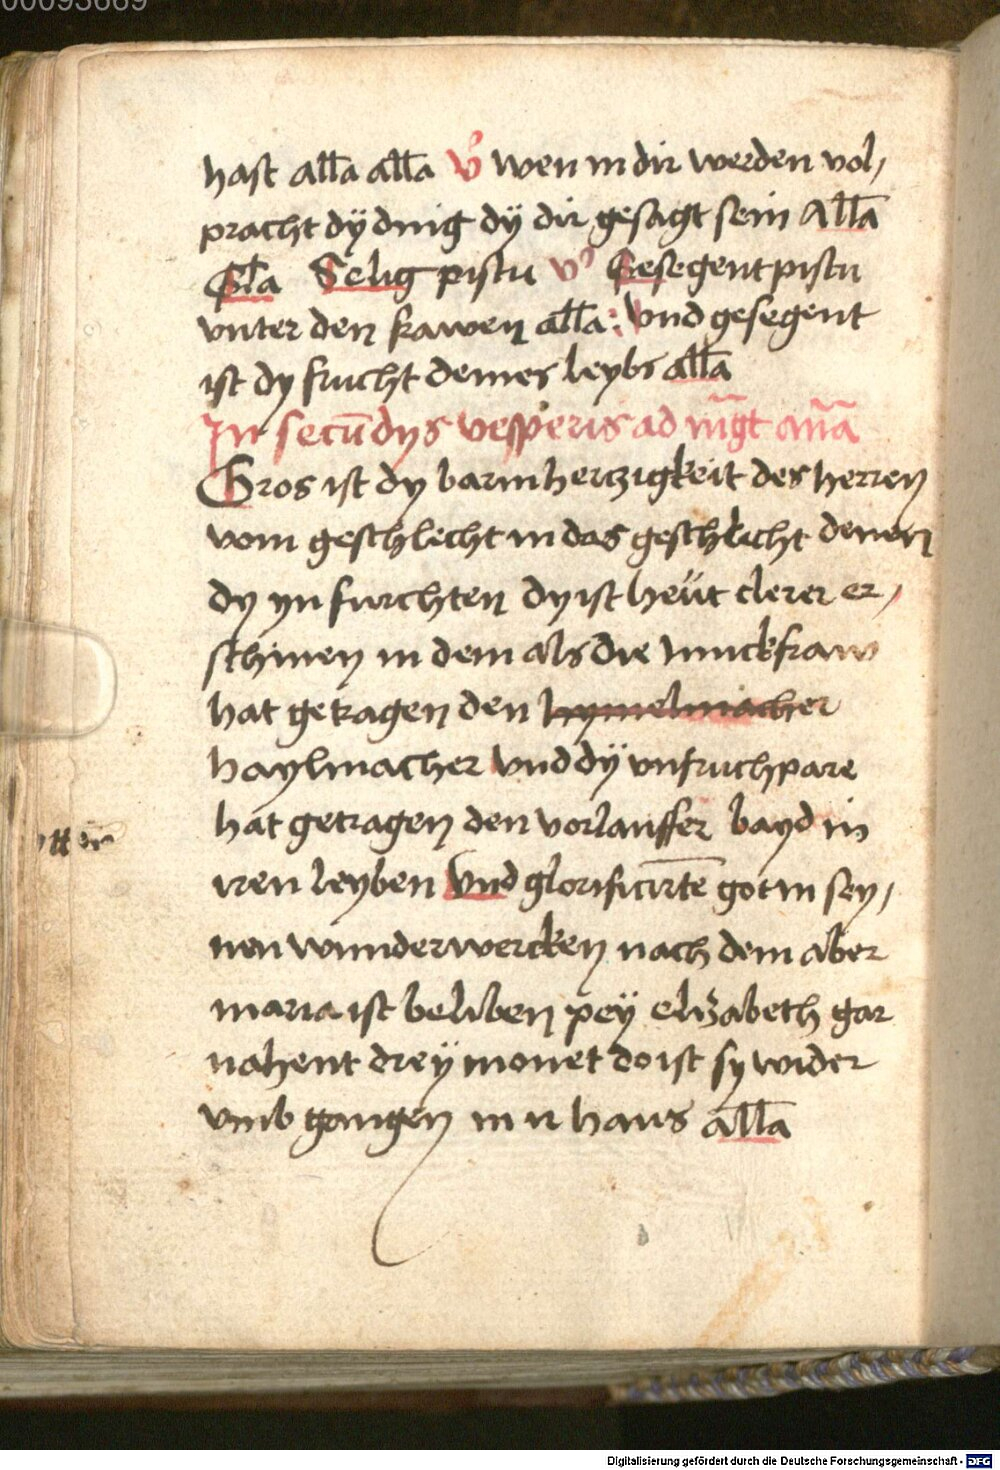 00093669
hast all̄a all̄a v̊ wen in dir werden vol,
pracht dÿ ding dÿ dir gesagt sein All̄a
Gl̄a Selig pistu v̊ Gesegent pistu
vnter den frawen all̄a: Vnd gesegent
ist dy frucht deines leybs all̄a
In secūdys vesperis ad m̄gt an̄a
Gros ist dy barmherczigkeit des herren
vom geschlecht in das geschlecht denen
dy yn furchten dy ist heüt clerer er,
schinen in dem als die Junckfraw
hat getragen den hymelmacher
haylmacher Vnd dÿ vnfruchpare
hat getragen den vorlauffer bayd in
iren leyben Vnd glorificirtē got in sey,
nen wunderwercken nach dem aber
maria ist beliben peÿ elizabeth gar
nahent dreÿ monet do ist sy wider
vmb gangen in ir haus all̄a
Digitalisierung gefördert durch die Deutsche Forschungsgemeinschaft - DFG